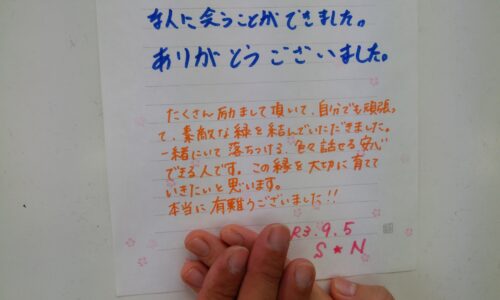 な人に会うことができました。
ありがとうございました。
たくさん励まして頂いて、自分でも頑張っ
て、素敵な縁を結んでいただきました。
一緒にいて落ちつける、色々話せる、安心
できる人です。この縁を大切に育てて
いきたいと思います。
本当に有難うございました!!
R3.9.5
S★N